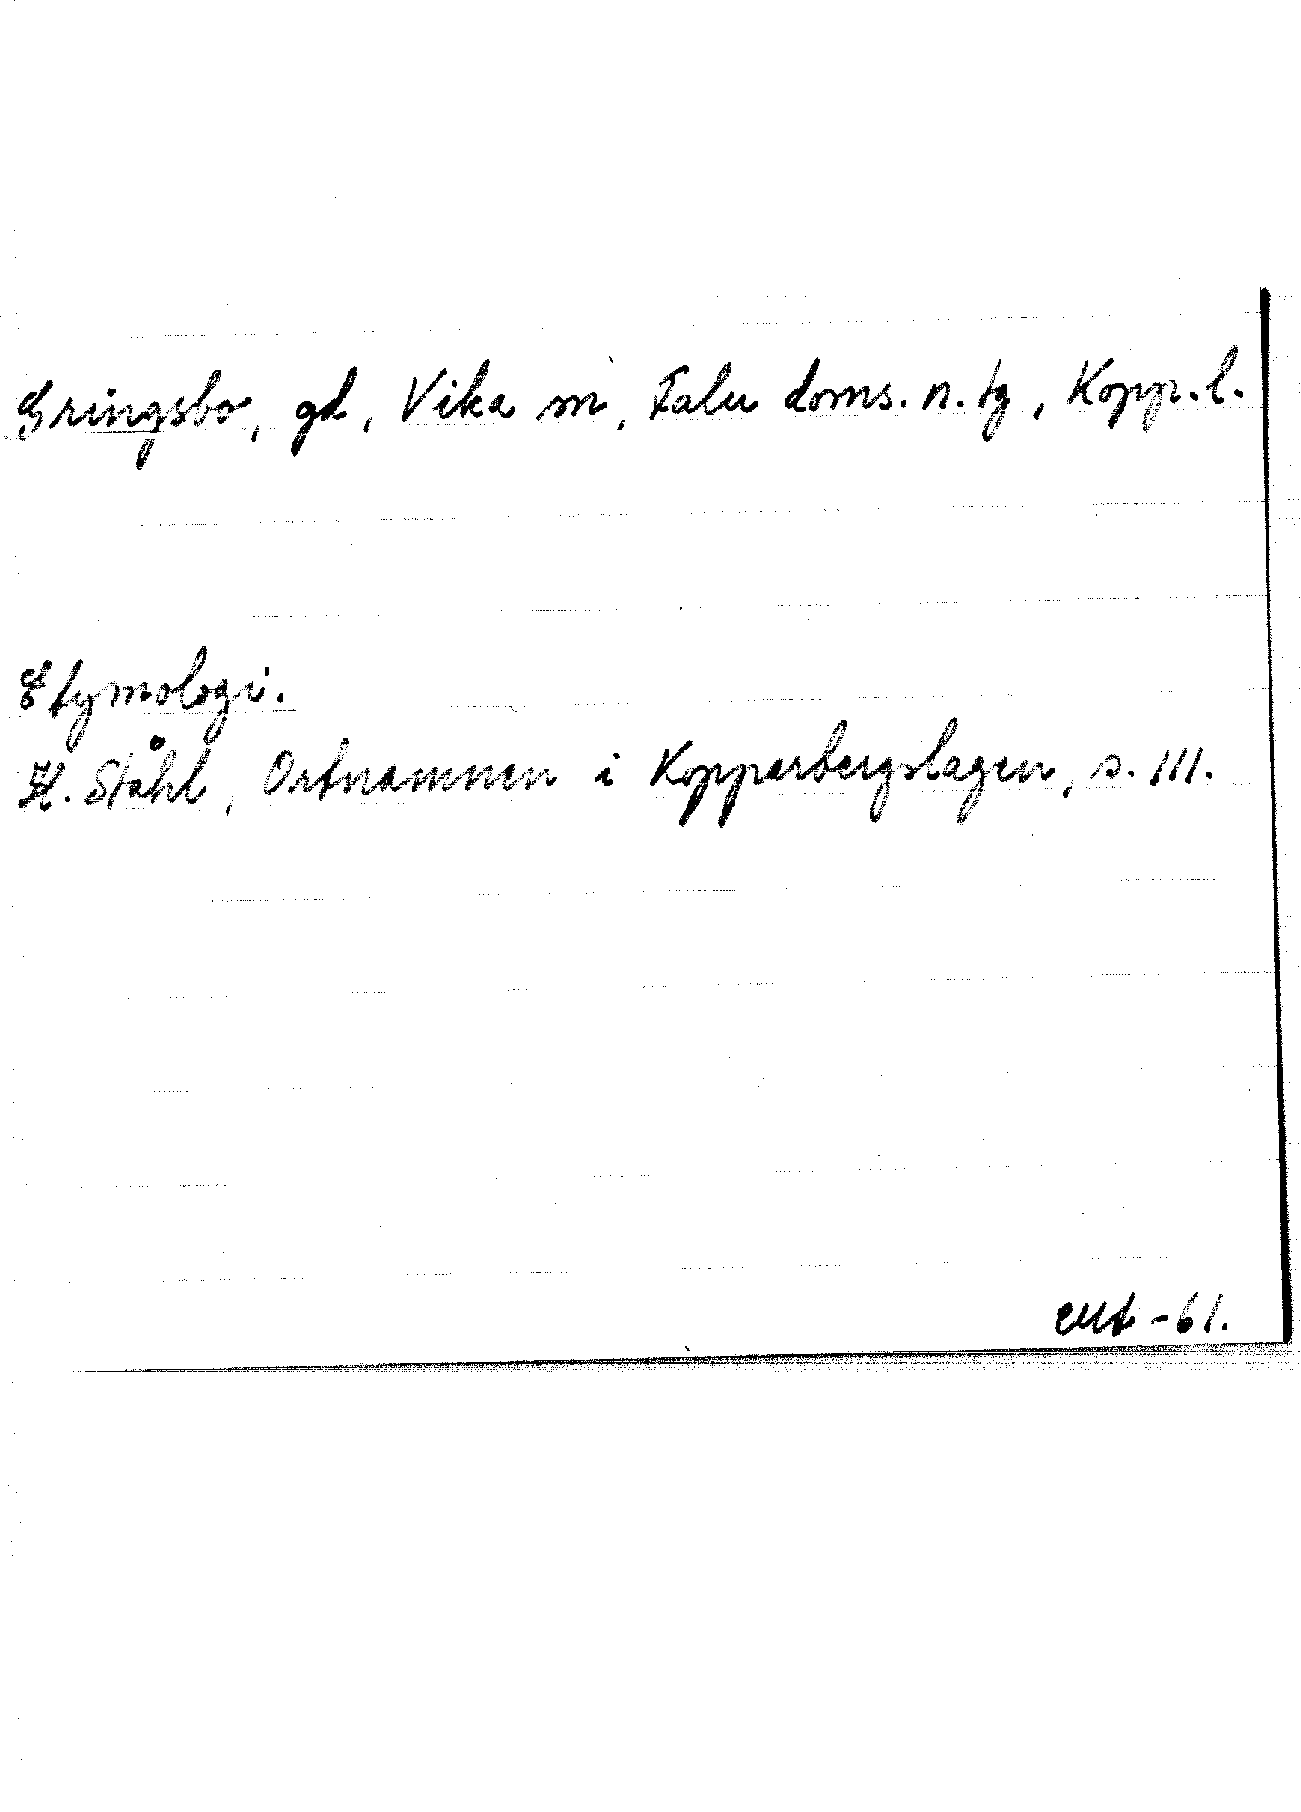 Gringsbo, gd, Vika sn, Falu doms. n. tg, Kopp. l.
Etymologi.
H. Ståhl, Ortnamnen i Kopparbergslagen, s. 111.
-61.